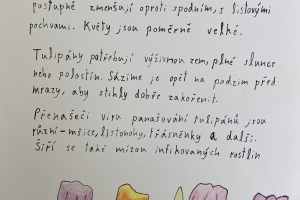 postupně zmenšují oproti spodním, s listovými
pochvami. Květy jsou poměrně velké.
Tulipány potřebují výživnou zem, plné slunce
nebo polostín. Sázíme je opět na podzim před
mrazy, aby stihly dobře zakořenit.
Přenašeči viru panašování tulipánů jsou
různí - mšice, listonohy, třásněnky a další.
Šíří se také mízou infikovaných rostlin